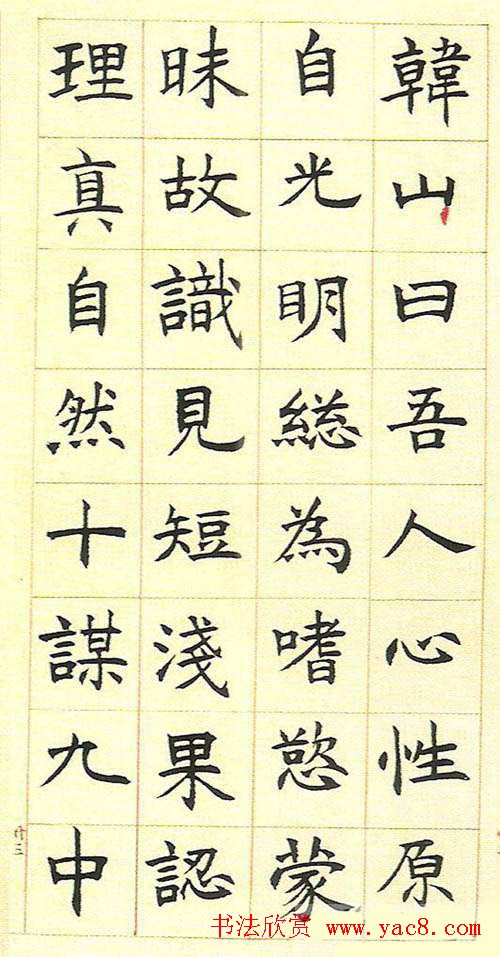 韓山曰吾人心性原
自光明總為嗜慾蒙
昧故識見短淺果認
理真自然十謀九中
廿三
书法欣赏 www.yac8.com